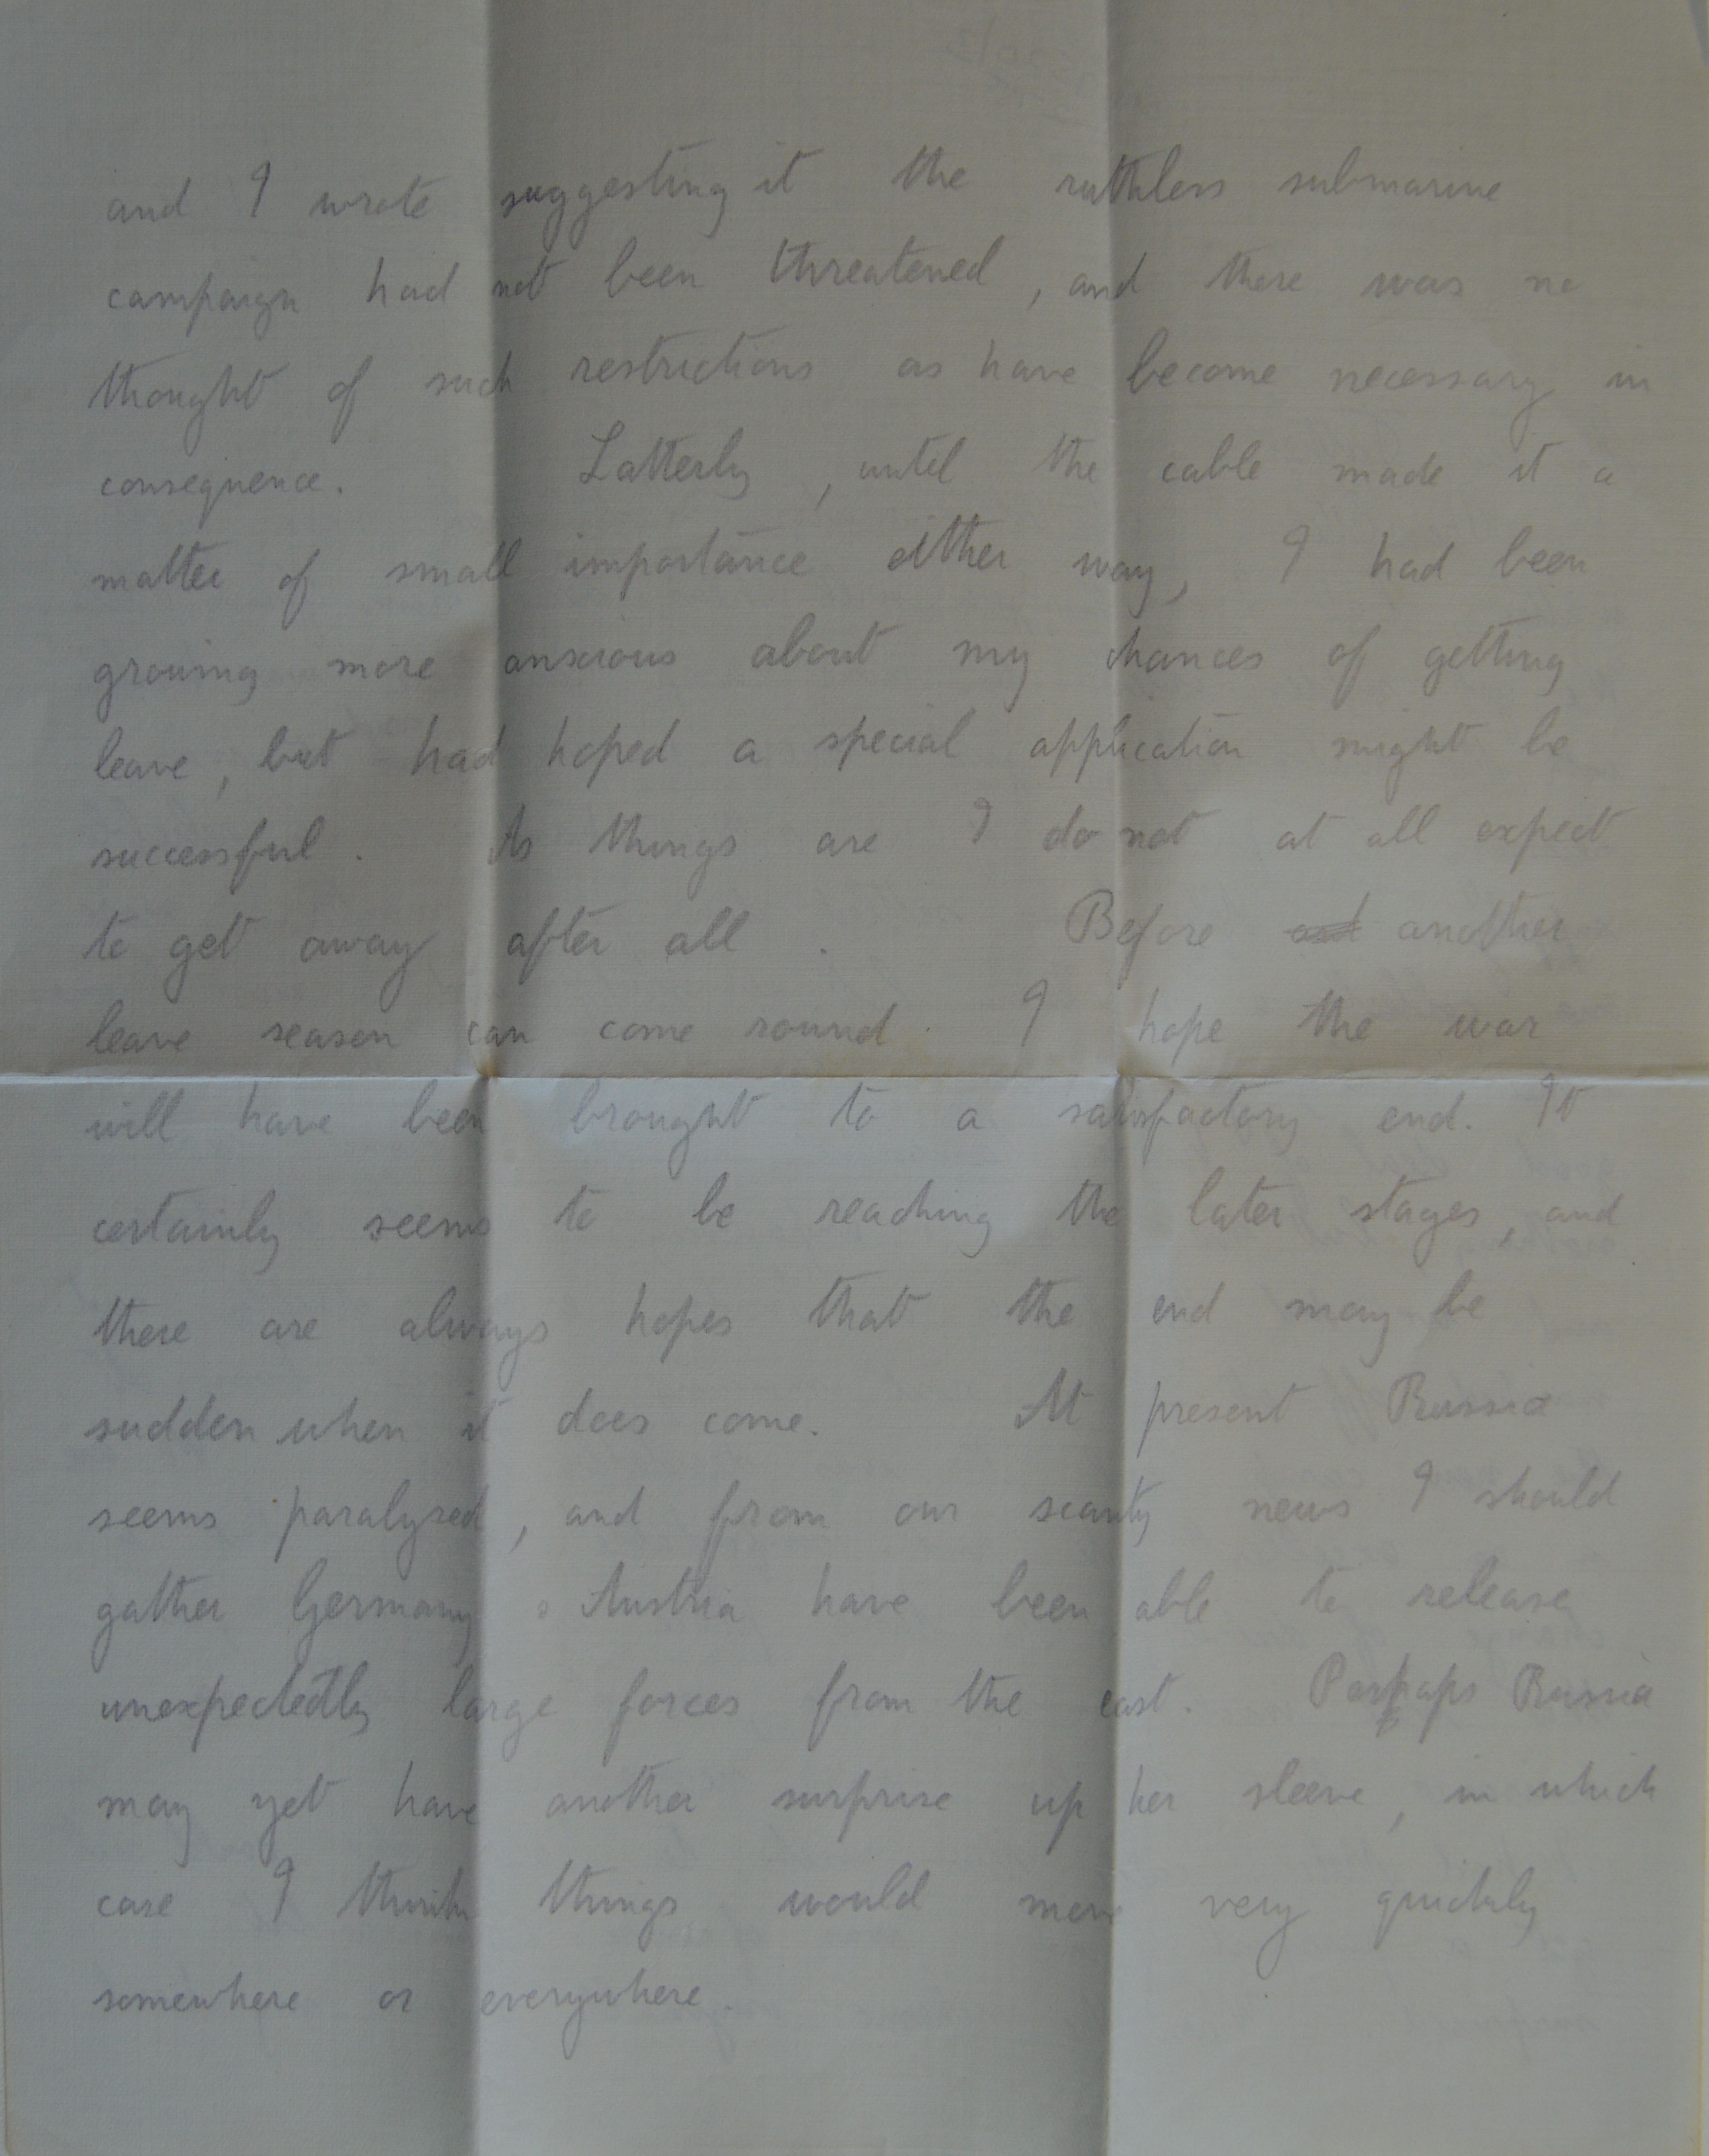 and I wrote suggesting it the ruthless submarine
campaign had not been threatened, and there was no
thought of such restrictions as have become necessary in
consequence. Latterly, until the cable made it a
matter of small importance either way, I had been
growing more anxious about my chances of getting
leave, but had hoped a special application might be
successful. As things are I do not at all expect
to get away after all. Before and another
leave season can come round I hope the war
will have been brought to a satisfactory end. It
certainly seems to be reaching the later stages, and
there are always hopes that the end may be
sudden when it does come. At present Russia
seems paralysed, and from our scanty news I should
gather Germany & Austria have been able to release
unexpectedly large forces from the east. Perhaps Russia
may yet have another surprise up her sleeve, in which
case I think things would move very quickly
somewhere or everywhere.